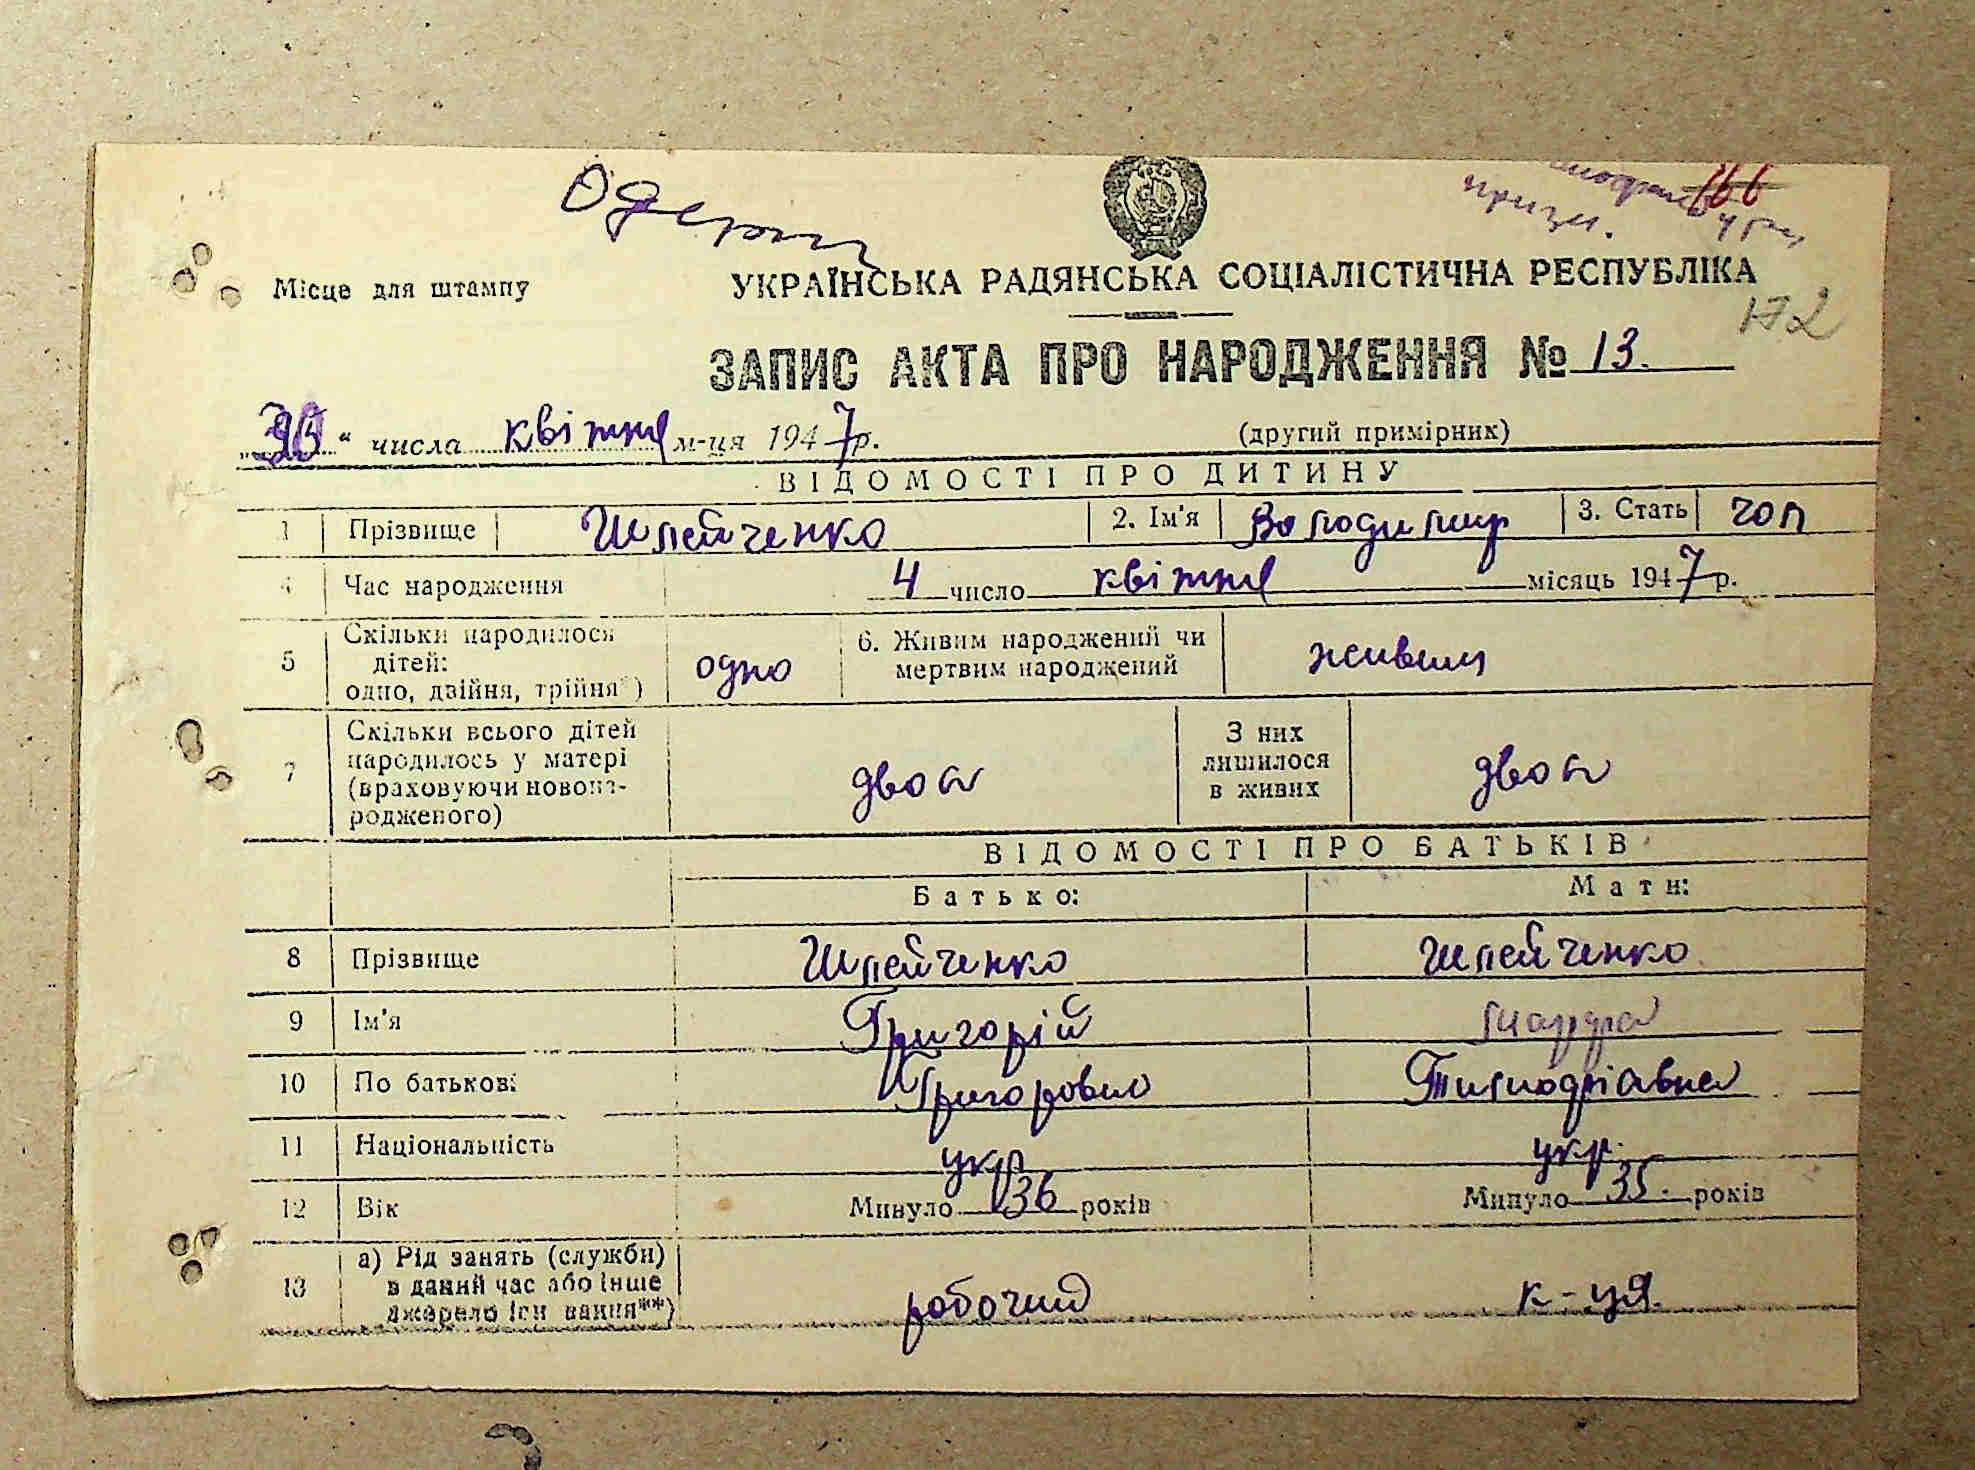 166
призи.
Місце для штампу
УКРАЇНСЬКА РАДЯНСЬКА СОЦІАЛІСТИЧНА РЕСПУБЛІКА
172
ЗАПИС АКТА ПРО НАРОДЖЕННЯ № 13.
„30“ числа квітня м-ця 1947 р.
(другий примірник)
ВІДОМОСТІ ПРО ДИТИНУ
1 Прізвище Шлейченко 2. Ім'я Володимир 3. Стать чол
4 Час народження 4 число квітня місяць 1947 р.
5 Скільки народилося дітей: одно, двійня, трійня*) одно 6. Живим народжений чи мертвим народжений живим
7 Скільки всього дітей народилось у матері (враховуючи новонародженого) двоє З них лишилося в живих двоє
ВІДОМОСТІ ПРО БАТЬКІВ
Батько: Мати:
8 Прізвище Шлейченко Шлейченко
9 Ім'я Григорій Марфа
10 По батькові Григорович Тимофіівна
11 Національність укр укр.
12 Вік Минуло 36 років Минуло 35. років
13 а) Рід занять (служби) в даний час або інше джерело існування**) робочий к-ця.